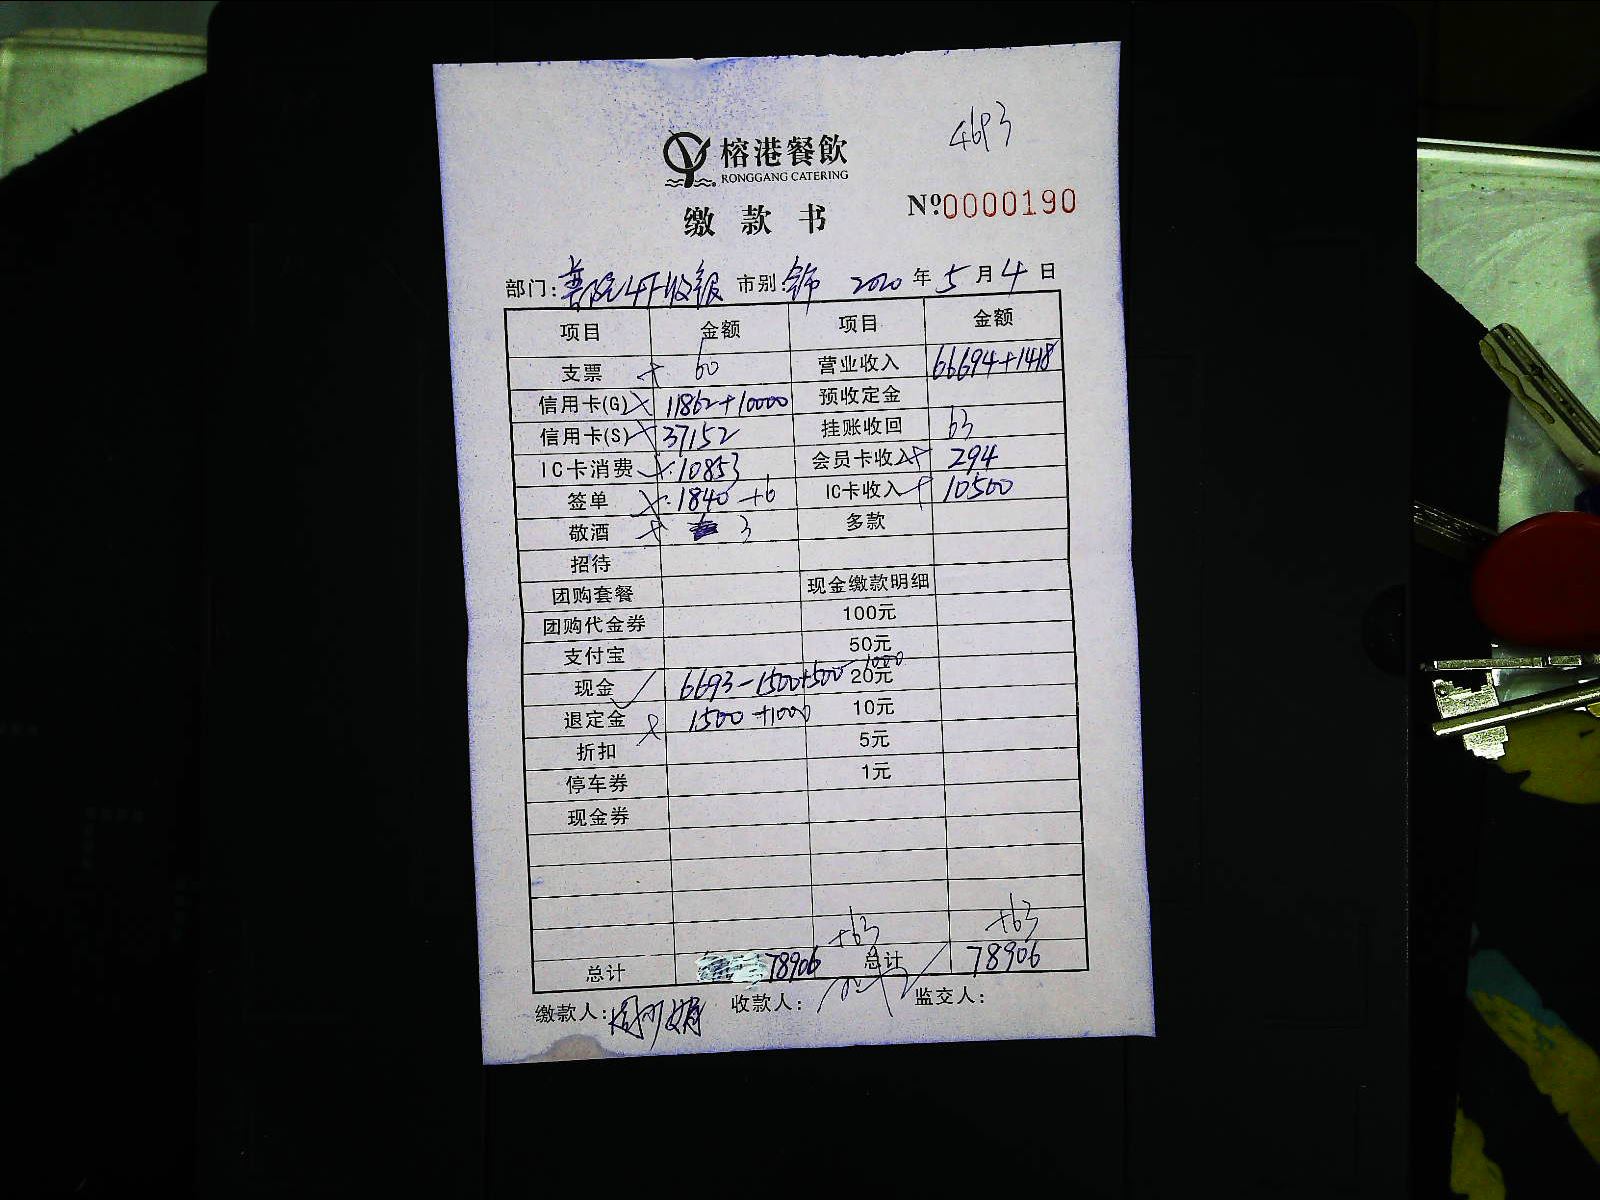 4693
榕港餐飲
RONGGANG CATERING
缴款书
Nº0000190
部门: 4F收银 市别: 2020年5月4日
项目 金额 项目 金额
支票 60 营业收入 66694+1418
信用卡(G) 11862+10000 预收定金
信用卡(S) 37152 挂账收回 63
IC卡消费 10853 会员卡收入 294
签单 1840+6 IC卡收入 10500
敬酒 3 多款
招待
团购套餐 现金缴款明细
团购代金券 100元
支付宝 50元
现金 6693-1500+500-1000 20元
退定金 1500+1000 10元
折扣 5元
停车券 1元
现金券
+63 +63
总计 78906 总计 78906
缴款人: 收款人: 监交人: